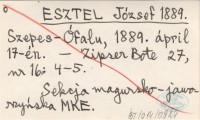 ESZTEL József 1889.
Szepes-Ófalu, 1889. április
17-én. — Zipser Bote 27,
nr 16: 4-5.
Sekcja magursko-jawo
rzyńska MKE.